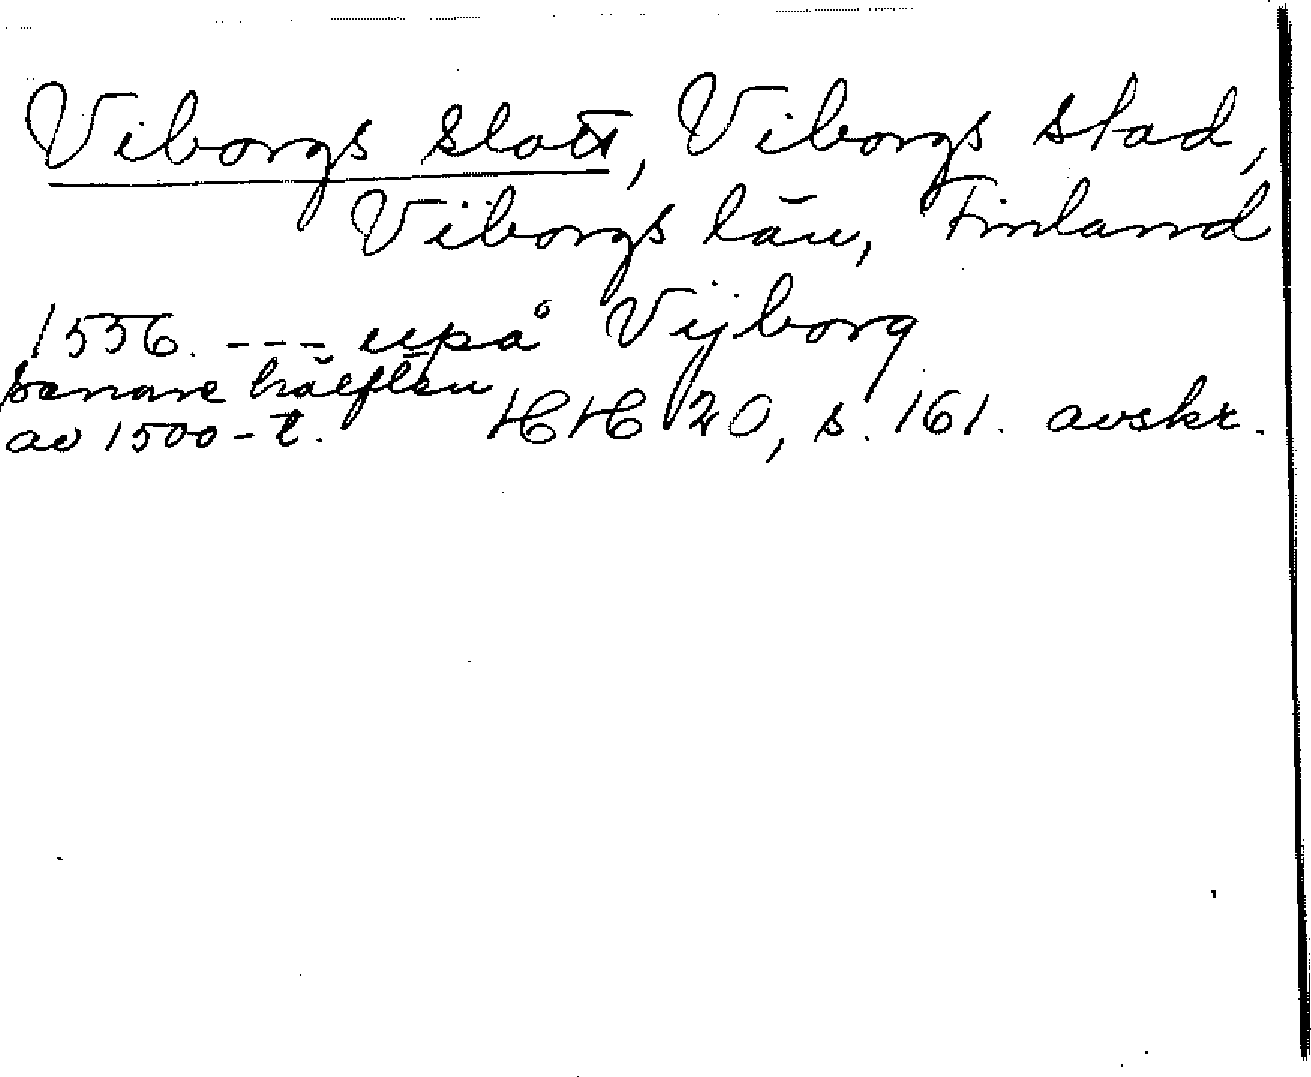 Viborgs slott, Viborgs stad,
Viborgs län, Finland
1556. --- upå Vijborg
senare hälften
av 1500-t. HH 20, s. 161. avskr.